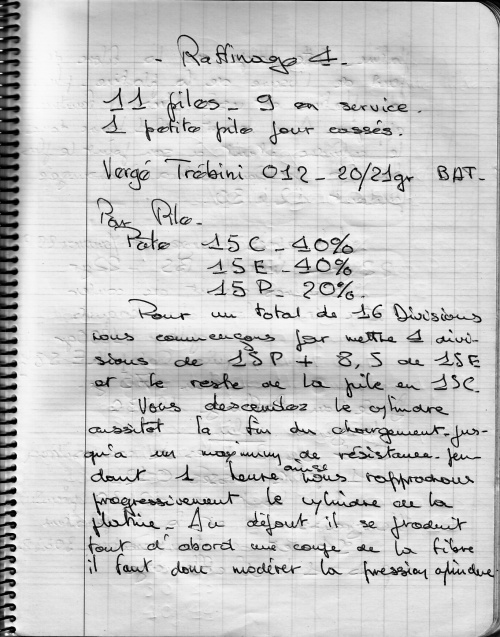 - Raffinage 1 -
11 piles - 9 en service.
1 petite pile pour cassés.
Vergé Trébini 012 - 20/21gr BAT-
Par Pile -
Pate 15C - 40%
15E - 40%
15P - 20%.
Pour un total de 16 Divisions
nous commençons par mettre 1 divi-
sions de 15P + 8,5 de 15E
et le reste de la pile en 15C.
Vous descendez le cylindre
aussitot la fin du chargement - jus-
qu'a un maximum de résistance - pen-
dant 1 heure ainsi nous rapprochons
progressivement le cylindre de la
platine - Au défaut il se produit
tout d'abord une coupe de la fibre
il faut donc modérer la pression afin de